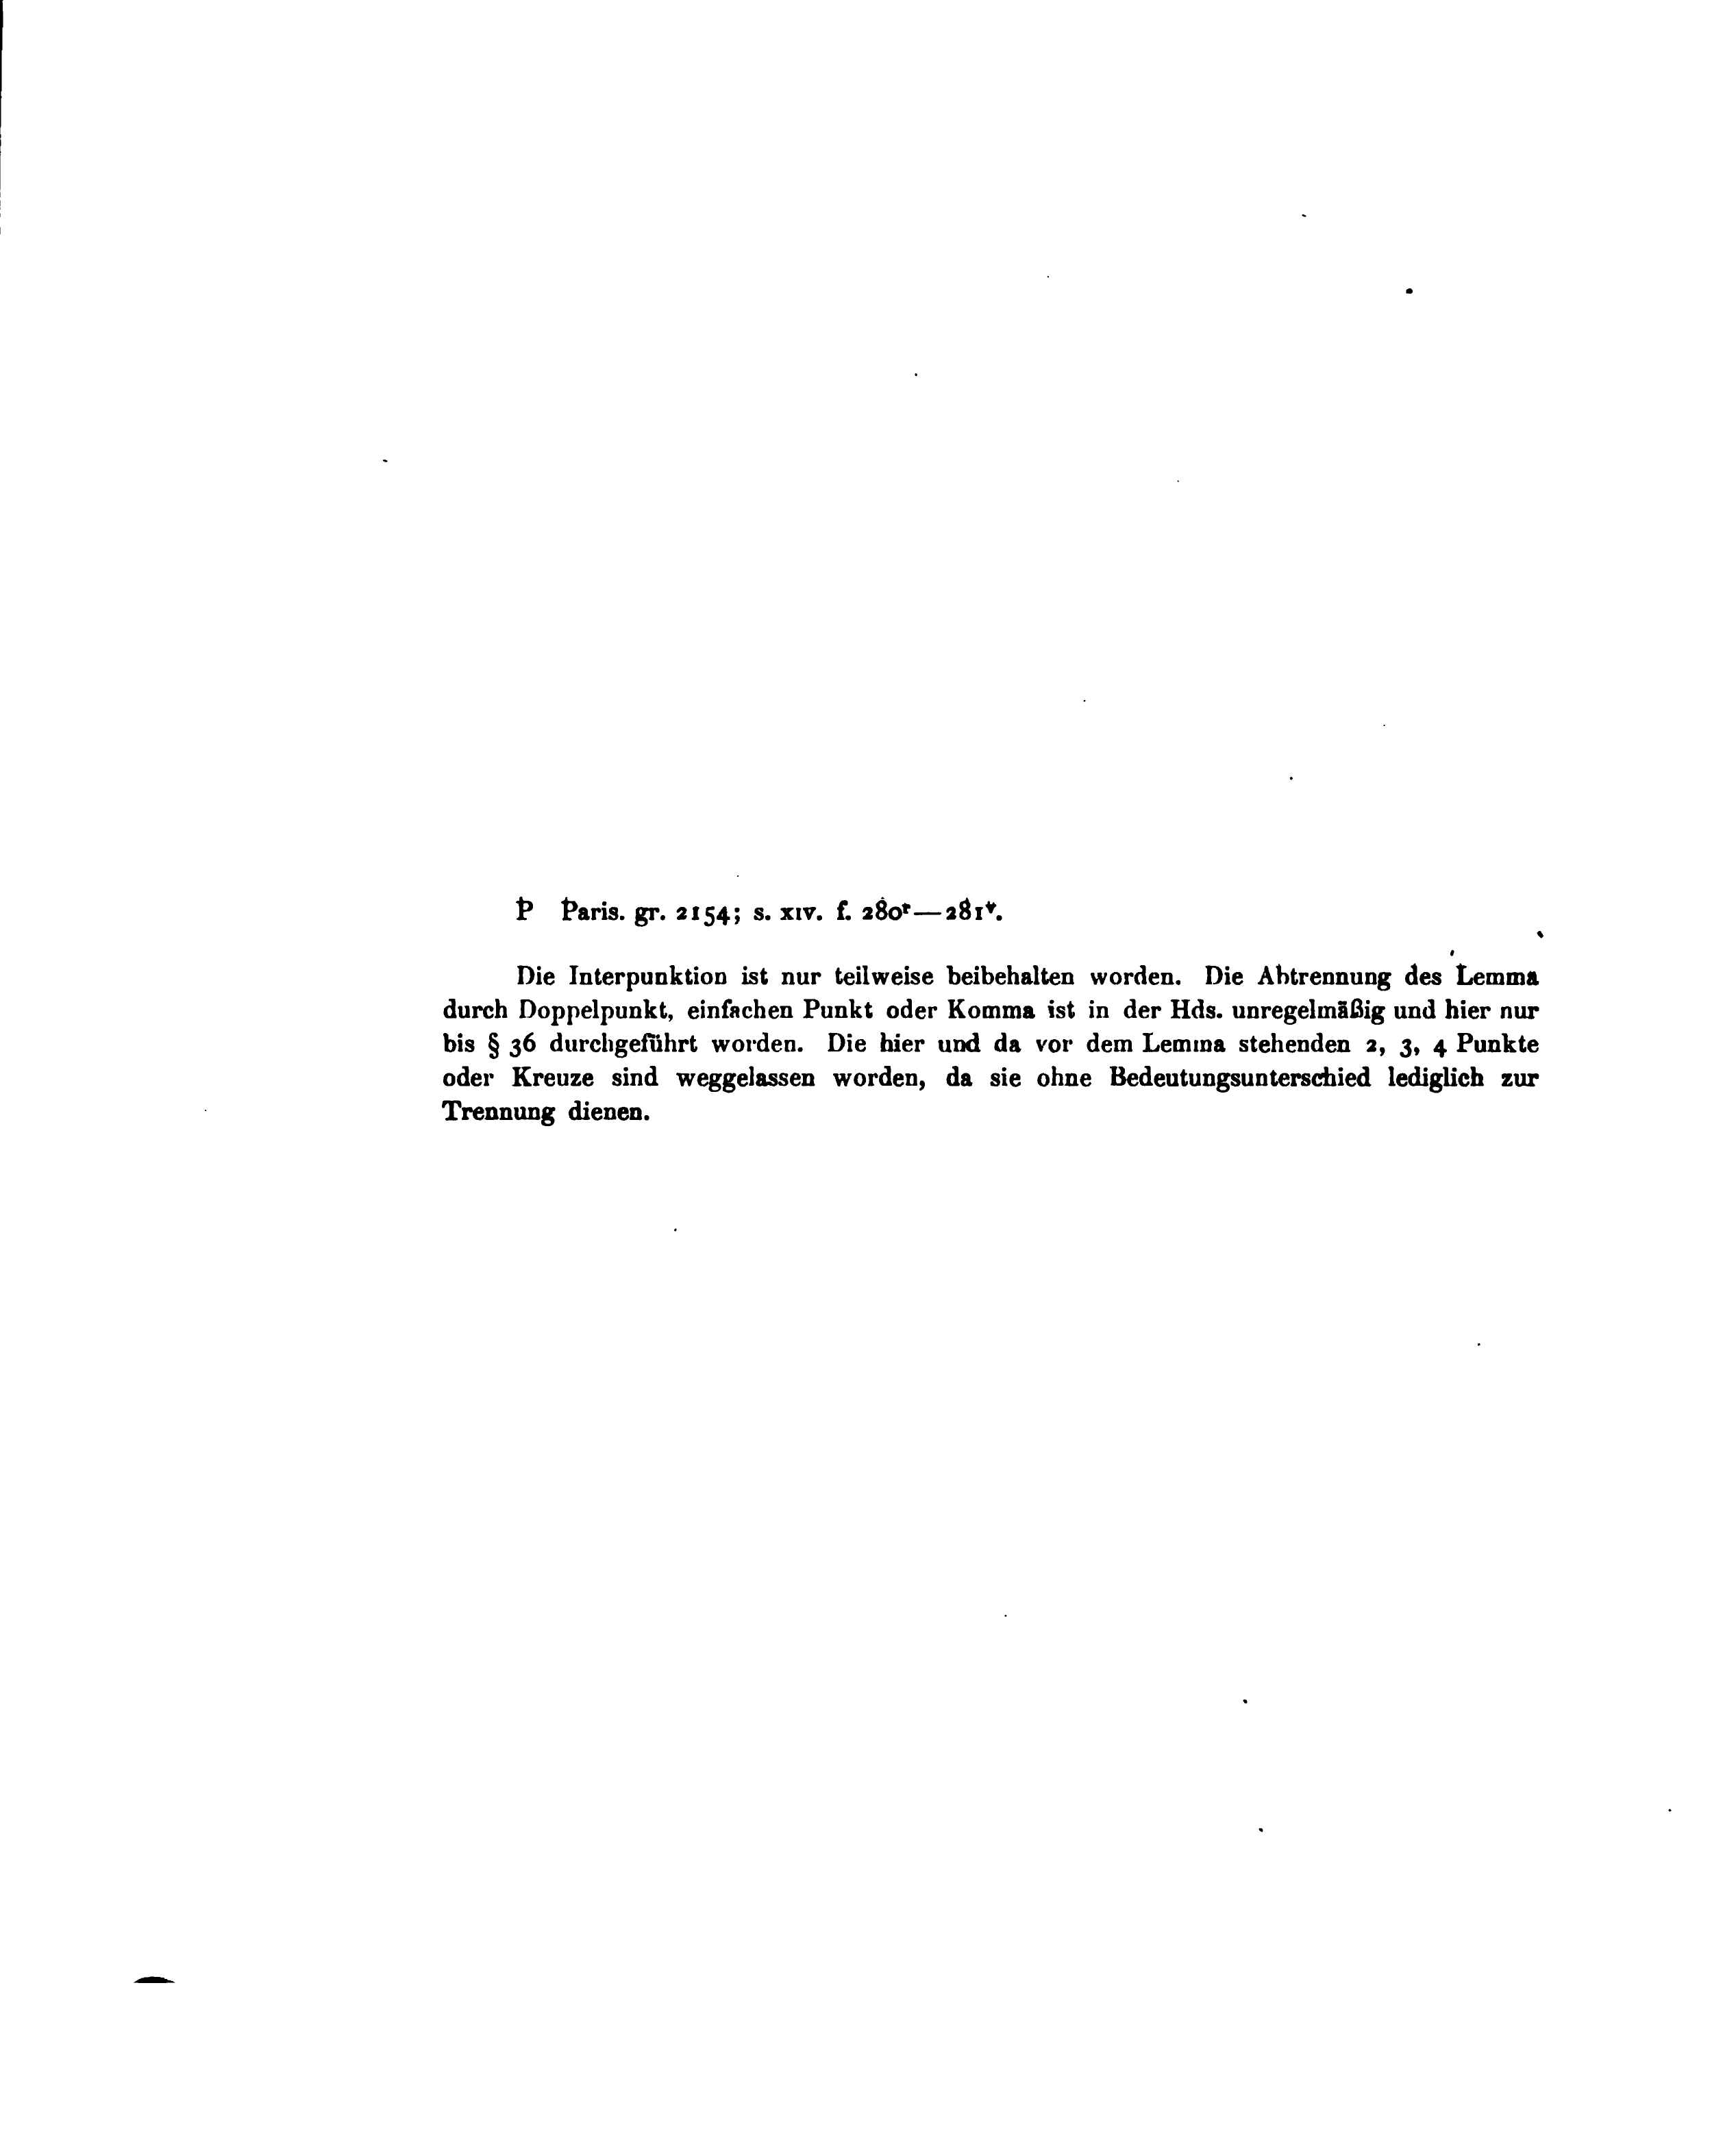 P Paris. gr. 2154; s. xiv. f. 280ʳ—281ᵛ.
Die Interpunktion ist nur teilweise beibehalten worden. Die Abtrennung des Lemma
durch Doppelpunkt, einfachen Punkt oder Komma ist in der Hds. unregelmäßig und hier nur
bis § 36 durchgeführt worden. Die hier und da vor dem Lemma stehenden 2, 3, 4 Punkte
oder Kreuze sind weggelassen worden, da sie ohne Bedeutungsunterschied lediglich zur
Trennung dienen.